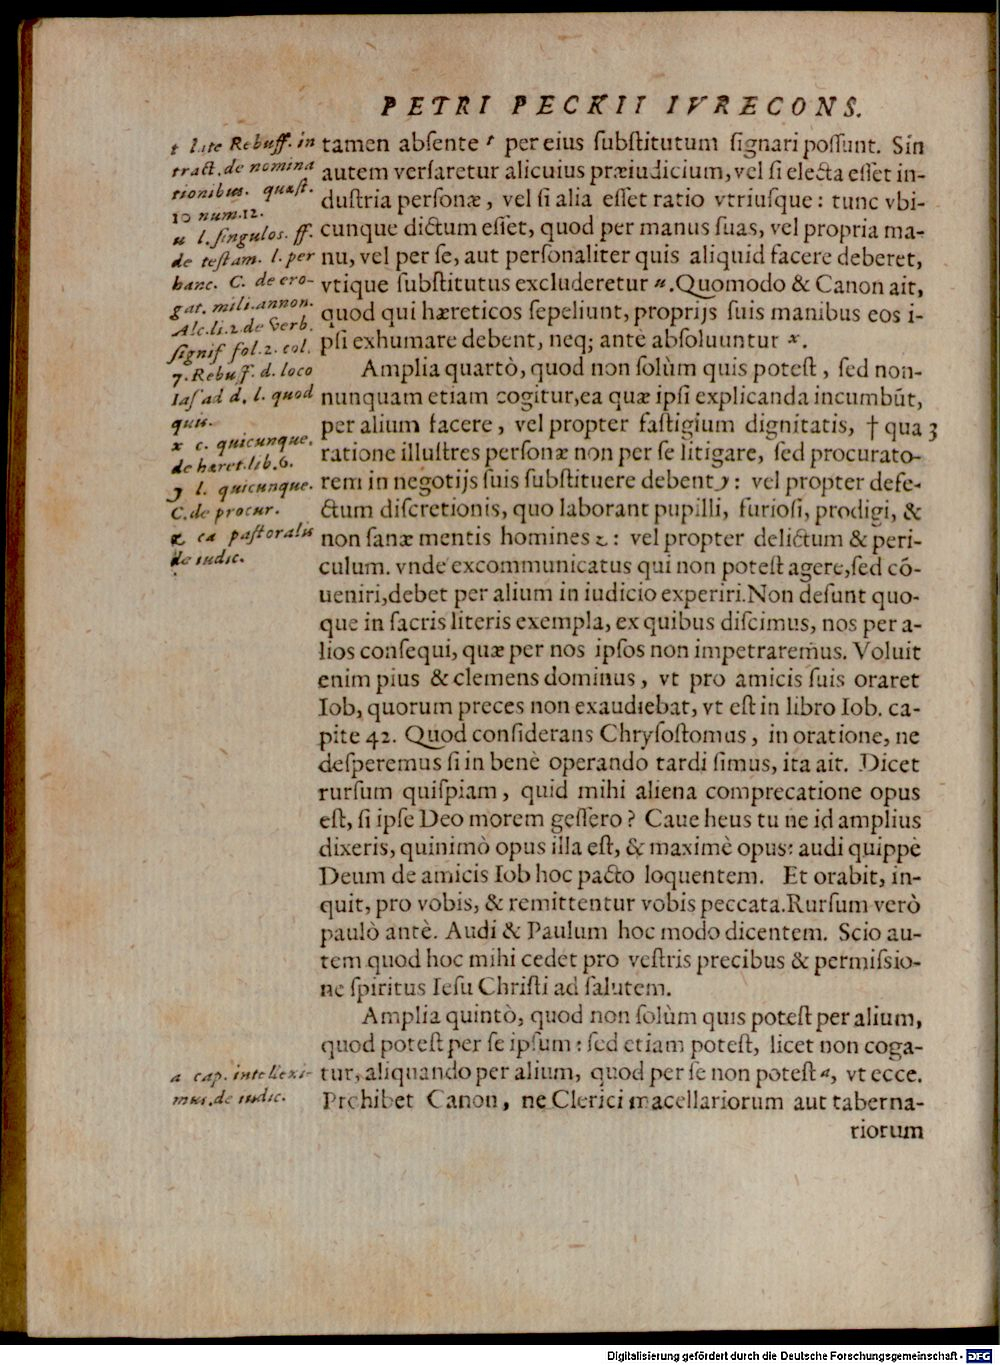 PETRI PECKII IVRECONS.
t late Rebuff. in
tract. de nomina
tionibus. quæst.
10 num. 12.
u l. singulos. ff.
de testam. l. per
hanc. C. de ero-
gat. mili. annon.
Alc. li. 2. de verb.
signif fol. 2. col.
7. Rebuff. d. loco
Ias ad d. l. quod
quis.
x c. quicunque.
de hæret. lib. 6.
y l. quicunque.
C. de procur.
z ca pastoralis
de iudic.
tamen absente t per eius substitutum signari possunt. Sin
autem versaretur alicuius præiudicium, vel si electa esset in-
dustria personæ, vel si alia esset ratio vtriusque: tunc vbi-
cunque dictum esset, quod per manus suas, vel propria ma-
nu, vel per se, aut personaliter quis aliquid facere deberet,
vtique substitutus excluderetur u. Quomodo & Canon ait,
quod qui hæreticos sepeliunt, proprijs suis manibus eos i-
psi exhumare debent, neq; antè absoluuntur x.
Amplia quartò, quod non solùm quis potest, sed non-
nunquam etiam cogitur, ea quæ ipsi explicanda incumbũt,
per alium facere, vel propter fastigium dignitatis, † qua 3
ratione illustres personæ non per se litigare, sed procurato-
rem in negotijs suis substituere debent y: vel propter defe-
ctum discretionis, quo laborant pupilli, furiosi, prodigi, &
non sanæ mentis homines z: vel propter delictum & peri-
culum. vnde excommunicatus qui non potest agere, sed cõ-
ueniri, debet per alium in iudicio experiri. Non desunt quo-
que in sacris literis exempla, ex quibus discimus, nos per a-
lios consequi, quæ per nos ipsos non impetraremus. Voluit
enim pius & clemens dominus, vt pro amicis suis oraret
Iob, quorum preces non exaudiebat, vt est in libro Iob. ca-
pite 42. Quod considerans Chrysostomus, in oratione, ne
desperemus si in benè operando tardi simus, ita ait. Dicet
rursum quispiam, quid mihi aliena comprecatione opus
est, si ipse Deo morem gessero? Caue heus tu ne id amplius
dixeris, quinimò opus illa est, & maximè opus: audi quippè
Deum de amicis Iob hoc pacto loquentem. Et orabit, in-
quit, pro vobis, & remittentur vobis peccata. Rursum verò
paulò antè. Audi & Paulum hoc modo dicentem. Scio au-
tem quod hoc mihi cedet pro vestris precibus & permissio-
ne spiritus Iesu Christi ad salutem.
Amplia quintò, quod non solùm quis potest per alium,
quod potest per se ipsum: sed etiam potest, licet non coga-
tur, aliquando per alium, quod per se non potest a, vt ecce.
Prohibet Canon, ne Clerici macellariorum aut taberna-
a cap. intellexi-
mus. de iudic.
riorum
Digitalisierung gefördert durch die Deutsche Forschungsgemeinschaft - DFG